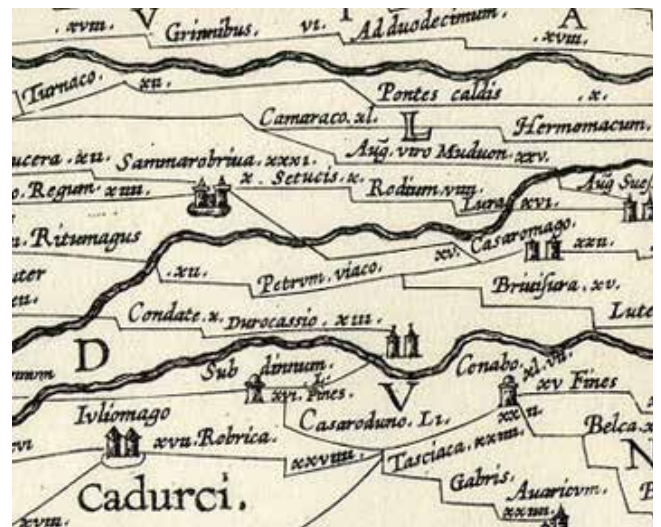 V I A
.xviii. Grinnibus. vi. Ad duodecimum. .xviii.
Turnaco. .xii. Pontes caldis .x.
Camaraco. xl. L Hermomacum.
Aug. viro Muduon. xxv.
ucera .xii. Sammarobriua .xxxi.
x. Setucis. x. Rodium. viiii.
o. Regum. xiiii. Lura. xvi. Aug Sues
. Ritumagus Casaromago. xxii.
.xii. Petrvm. viaco. xv. Briuisura. xv.
Condate. x. Durocassio. xiii. Lute
D Sub dinnum. Cenabo. xl. vii.
xvi. Fines V xv Fines
Ivliomago Casaroduno. Li. Belca. x
xvii. Robrica. xxviiii. Tasciaca. xxiiii. N
Cadurci. Gabris. Avaricvm.
xviii. xxiiii.